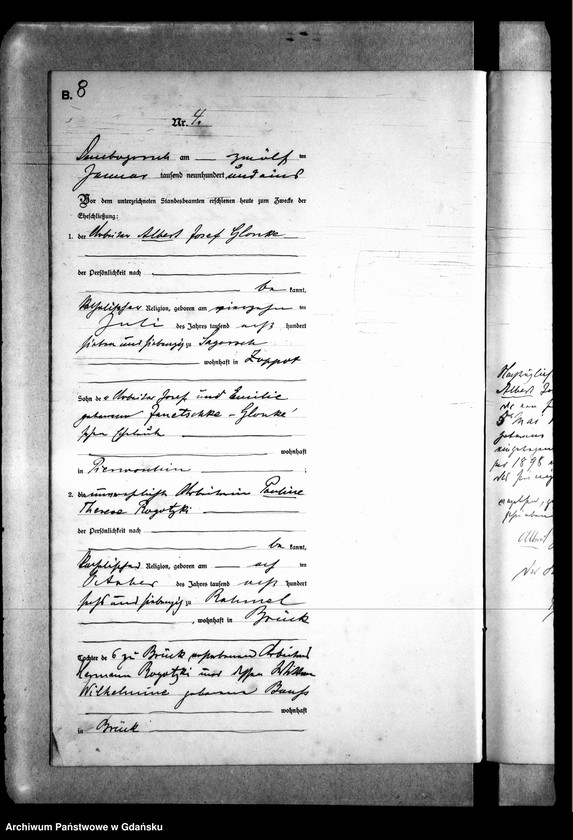 B. 8
Nr. 4.
am zwölf ten
Januar tausend neunhundert und eins
Vor dem unterzeichneten Standesbeamten erschienen heute zum Zwecke der
Eheschließung:
1. der Arbeiter Albert Josef Glonke
der Persönlichkeit nach
be kannt,
katholischer Religion, geboren am vierzehn ten
Juli des Jahres tausend acht hundert
sieben und siebenzig zu Sagorsch
wohnhaft in Zoppot
Sohn des Arbeiter Josef und Emilie
geborenen Glonke'
schen Eheleute
wohnhaft
in Pierwoschin ;
2. die unverehelichte Arbeiterin Pauline
Therese Rogotzki
der Persönlichkeit nach
be kannt,
katholischer Religion, geboren am ach ten
Oktober des Jahres tausend acht hundert
sechs und siebenzig zu Rahmel
, wohnhaft in Brück
Tochter des zu Brück verstorbenen Arbeiters
Hermann Rogotzki und dessen Wittwe
Wilhelmine geborene
wohnhaft
in Brück
Albert
1898
Albert
Archiwum Państwowe w Gdańsku